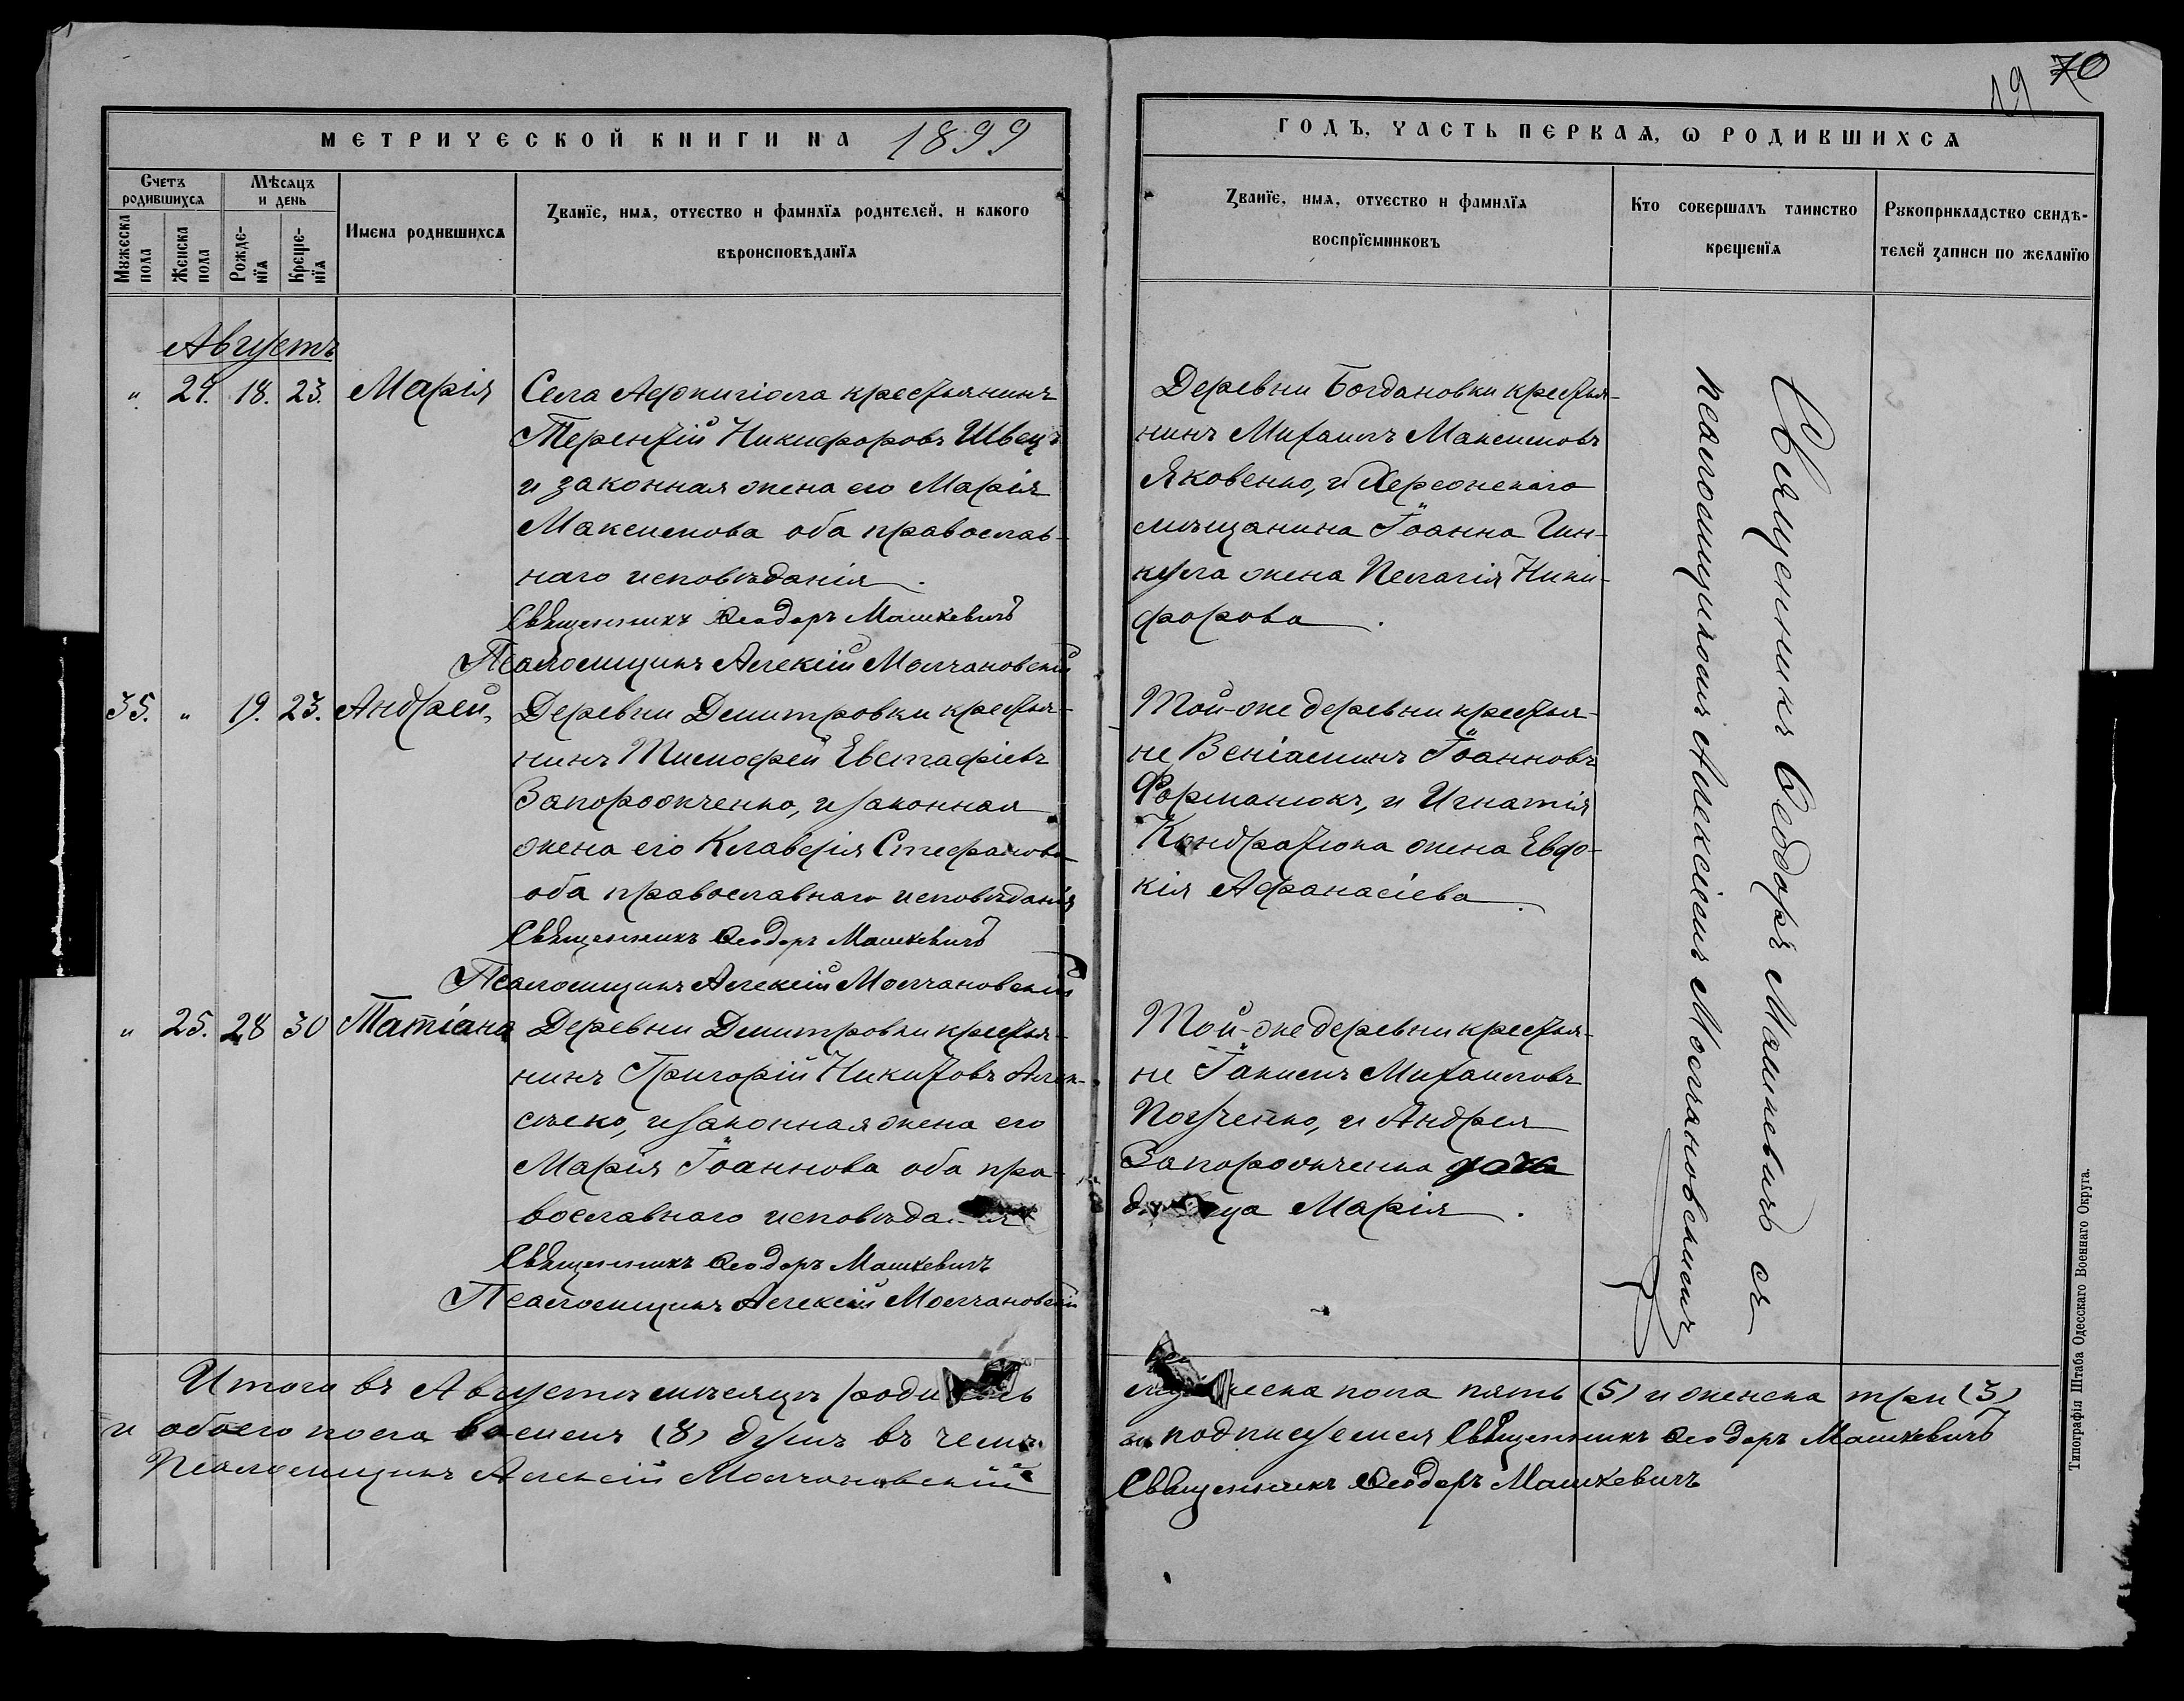 70
19
МЕТРИЧЕСКОЙ КНИГИ НА 1899
ГОДЪ, ЧАСТЬ ПЕРВАѦ, Ѡ РОДИВШИХСѦ
Счетъ родившихсѧ
Мѣсѧцъ и день
Мꙋжеска пола
Женска пола
Рожде-нїѧ
Креще-нїѧ
Имена родившихсѧ
Званїе, имѧ, отчество и фамилїѧ родителей, и какого
вѣроисповѣданїѧ
Званїе, имѧ, отчество и фамилїѧ
воспрїемниковъ
Кто совершалъ таинство
крещенїѧ
Рꙋкоприкладство свидѣ-
телей записи по желанїю
Августъ
" 24. 18. 23. Марія
Села Аджигіола крестьянинъ
Терентій Никифоровъ Швецъ
и законная жена его Марія
Максимова оба православ-
наго исповѣданія.
Священникъ Ѳеодоръ Машкевичъ
Псаломщикъ Алексій Молчановскій
Деревни Богдановки крестья-
нинъ Михаилъ Максимовъ
Яковенко, и Херсонскаго
мѣщанина Іоанна Гин-
кула жена Пелагія Ники-
форова.
35. " 19. 23. Андрей,
Деревни Димитровки крестья-
нинъ Тимофей Евстафіевъ
Запорожченко, и законная
жена его Клавдія Стефанова
оба православнаго исповѣданія
Священникъ Ѳеодоръ Машкевичъ
Псаломщикъ Алексій Молчановскій
Той-же деревни крестья-
не Веніаминъ Іоанновъ
Форманюкъ, и Игнатія
Кондратюка жена Евдо-
кія Афанасіева.
" 25. 28 30 Татіана
Деревни Димитровки крестья-
нинъ Григорій Никитовъ Алек-
сѣенко, и законная жена его
Марія Іоаннова оба пра-
вославнаго исповѣданія
Священникъ Ѳеодоръ Машкевичъ
Псаломщикъ Алексій Молчановскій
Той-же деревни крестья-
не Іакимъ Михаиловъ
и Андрея
Запорожченка
Марія.
Священникъ Ѳеодоръ Машкевичъ съ
псаломщикомъ Алексіемъ Молчановскимъ
Итого въ Августѣ мѣсяцѣ родилось
мужеска пола пять (5) и женска три (3)
и обоего пола восемь (8) душъ въ чемъ
и подписуемся Священникъ Ѳеодоръ Машкевичъ
Псаломщикъ Алексій Молчановскій
Священникъ Ѳеодоръ Машкевичъ
Типографія Штаба Одесскаго Военнаго Округа.